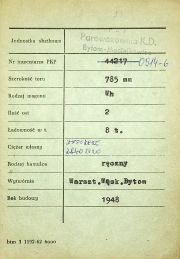 Jednostka służbowa
Parowozownia K.D.
Bytom-
Nr inwentarza PKP 44217 0514-6
Szerokość toru 785 mm
Rodzaj wagonu Wh
Ilość osi 2
Ładowność w t. 8 t.
Ciężar własny
Rodzaj hamulca ręczny
Wytwórnia Warszt.Wąsk.Bytom
Rok budowy 1948